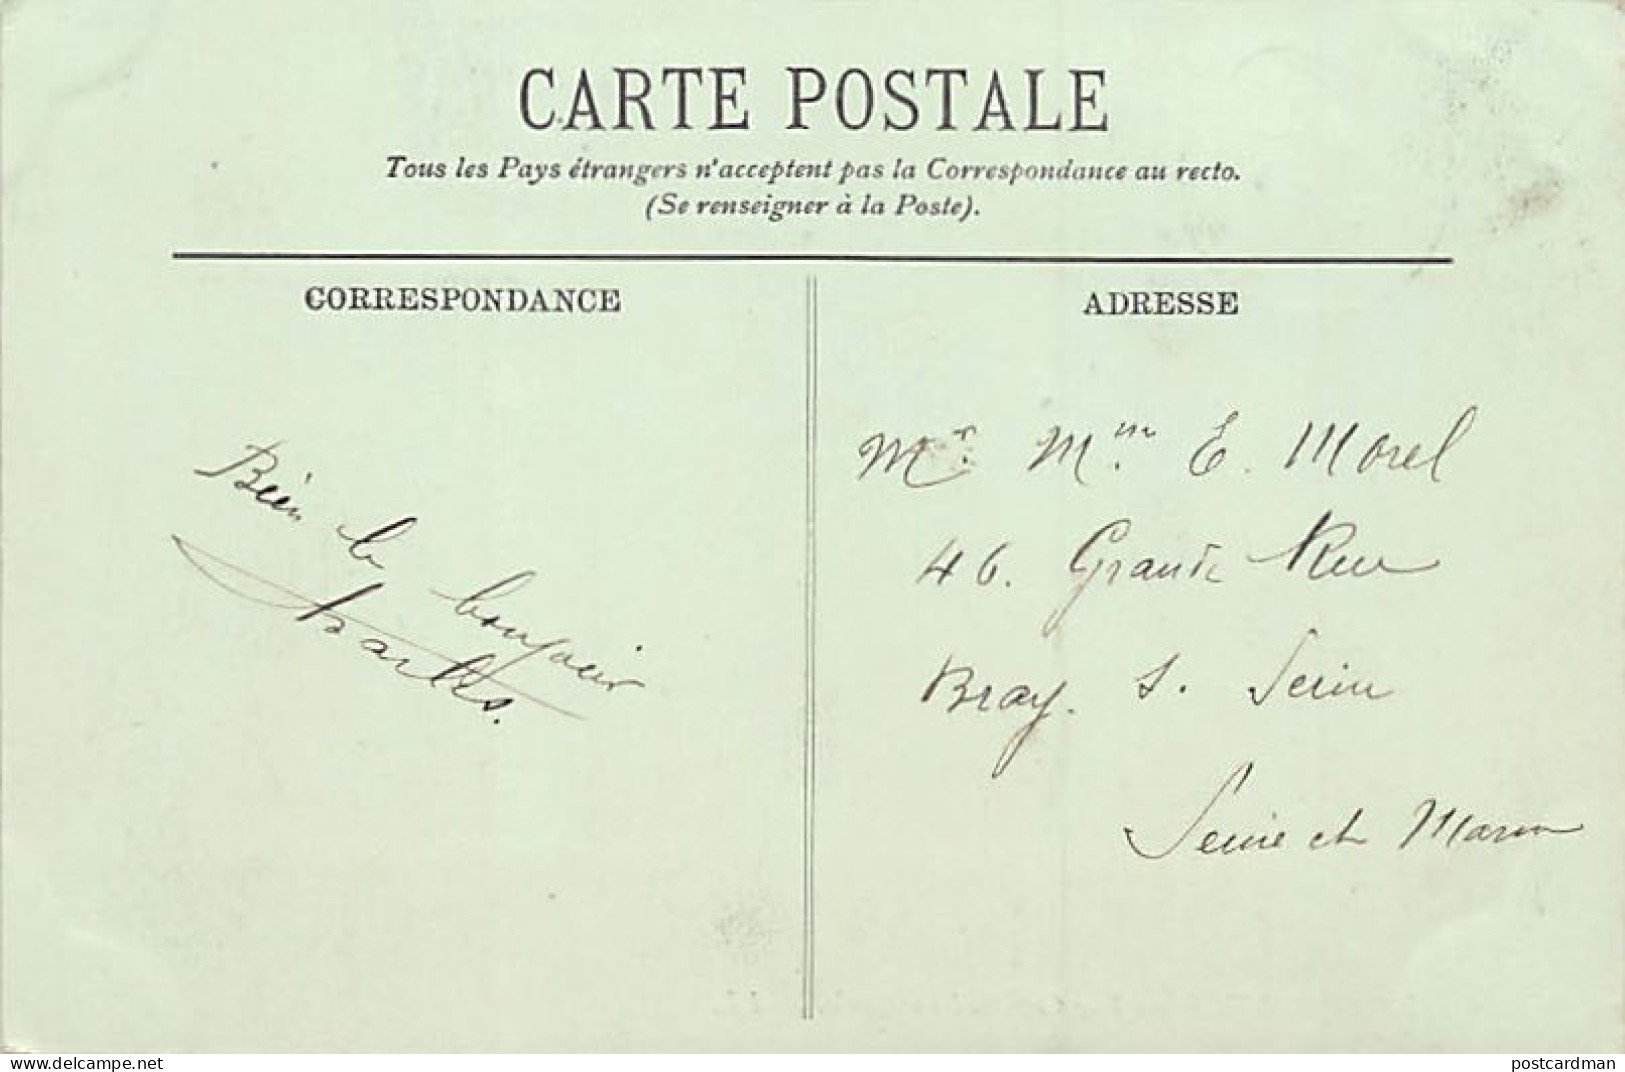 CARTE POSTALE
Tous les Pays étrangers n'acceptent pas la Correspondance au recto.
(Se renseigner à la Poste).
CORRESPONDANCE
ADRESSE
Bien le bonjour
Charles.
Mr. Mme E. Morel
46. Grande Rue
Bray. s. Seine
Seine et Marne
delcampe.net
postcardman